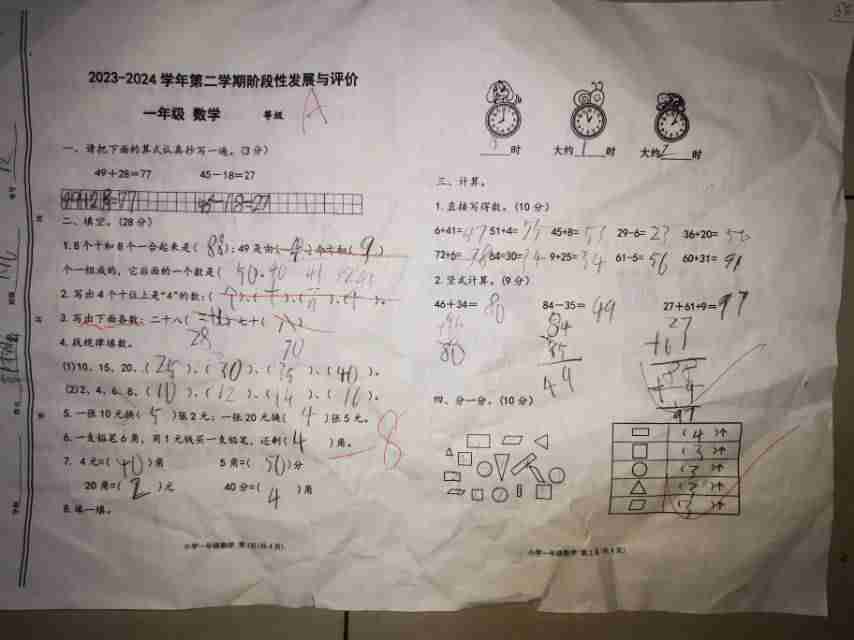 2023-2024 学年第二学期阶段性发展与评价
一年级 数学 等级 A
一、请把下面的算式认真抄写一遍。(3分)
49+28=77 45-18=27
49+28=77 45-18=27
二、填空。(28分)
1.8个十和8个一合起来是( 88 );49是由( 4 )个十和( 9 )
个一组成的,它后面的一个数是( 50
2. 写出4个十位上是“4”的数:( )、( )、( )、( )。
40 41
3. 写出下面各数:二十八( ) 七十( )
28 70
4. 找规律填数。
(1)10、15、20、( 25 )、( 30 )、( 35 )、( 40 )。
(2)2、4、6、8、( 10 )、( 12 )、( 14 )、( 16 )。
5. 一张10元换( 5 )张2元;一张20元换( 4 )张5元。
6. 一支铅笔6角,用1元钱买一支铅笔,还剩( 4 )角。
-8
7. 4元=( 40 )角 5角=( 50 )分
20角=( 2 )元 40分=( 4 )角
8. 填一填。
小学一年级数学 第1页(共4页)
时 大约 1 时 大约 时
三、计算。
1. 直接写得数。(10分)
6+41=47 51+4= 45+8=53 29-6=23 36+20=
72+6=78 64-30=34 9+25=34 61-5=56 60+31=91
2. 竖式计算。(9分)
46+34=80 84-35=49 27+61+9=97
80
84
35
49
27
+61
97
四、分一分。(10分)
( 4 )个
( 3 )个
( 3 )个
( 3 )个
( 3 )个
小学一年级数学 第2页(共4页)